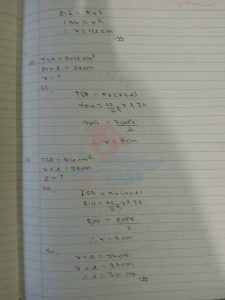 ∴ r = 14 cm
TSA = 704 cm²
r + l = 32 cm
r = ?
so,
TSA = πr(r+l)
704 = 22/7 × r × 32
∴ r = 7 cm
TSA = 814 cm²
r + l = 37 cm
l = ?
so,
TSA = πr(r+l)
814 = 22/7 × r × 37
∴ r = 7 cm
So,
r + l = 37 cm
7 + l = 37 cm
∴ l = 30 cm